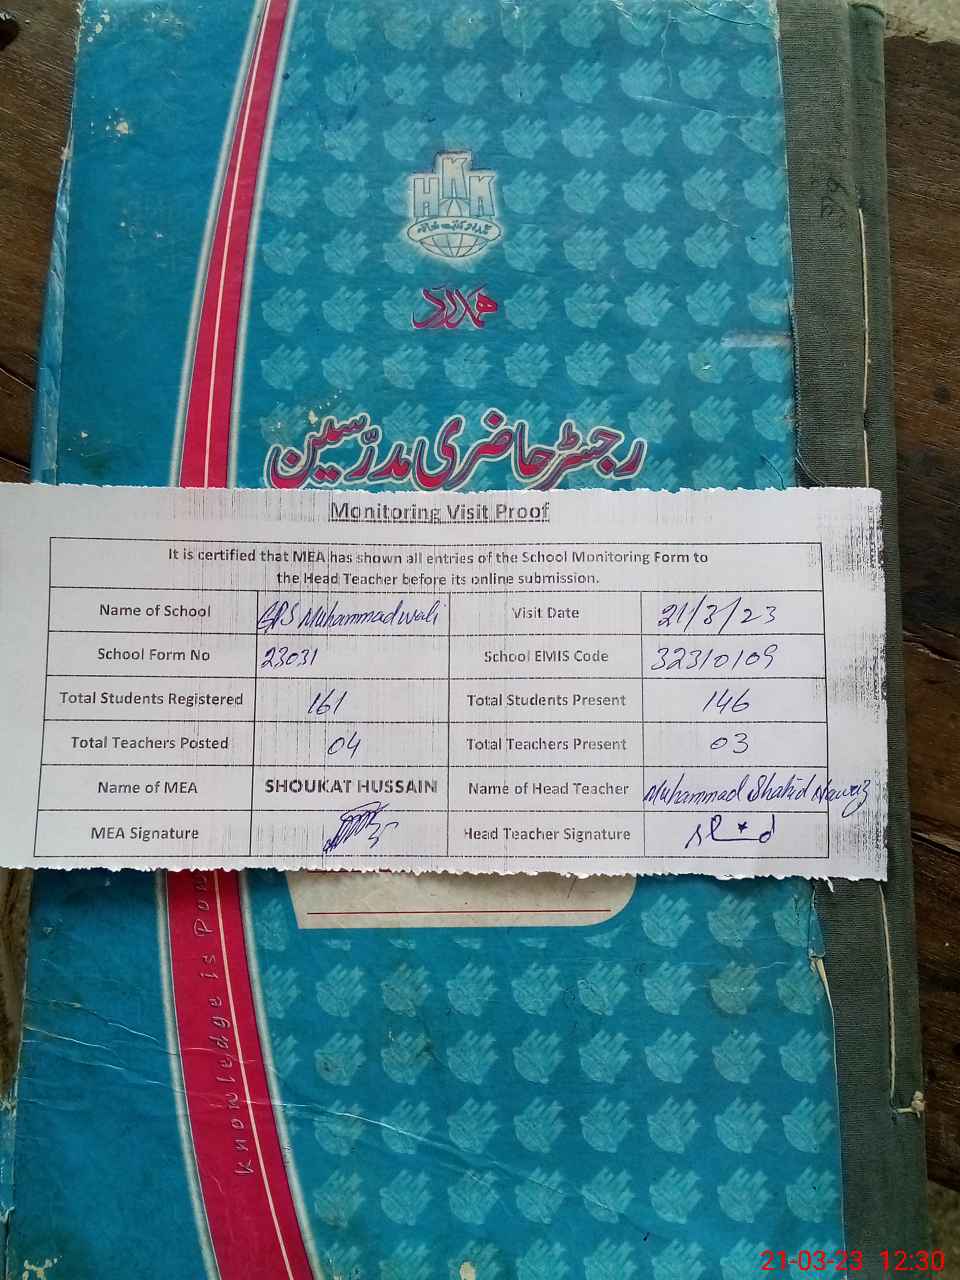 HKK
ہمدرد کتب خانہ
ہمدرد
رجسٹر حاضری مدرّسین
Monitoring Visit Proof
It is certified that MEA has shown all entries of the School Monitoring Form to
the Head Teacher before its online submission.
Name of School GPS Muhammad wali Visit Date 21/3/23
School Form No 23031 School EMIS Code 32310109
Total Students Registered 161 Total Students Present 146
Total Teachers Posted 04 Total Teachers Present 03
Name of MEA SHOUKAT HUSSAIN Name of Head Teacher Muhammad Shahid Nawaz
MEA Signature Head Teacher Signature
Knowledge is Pow
21-03-23 12:30